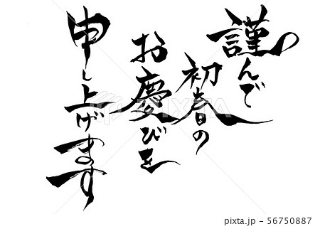 謹んで
初春の
お慶びを
申し上げます
pixta.jp - 56750887